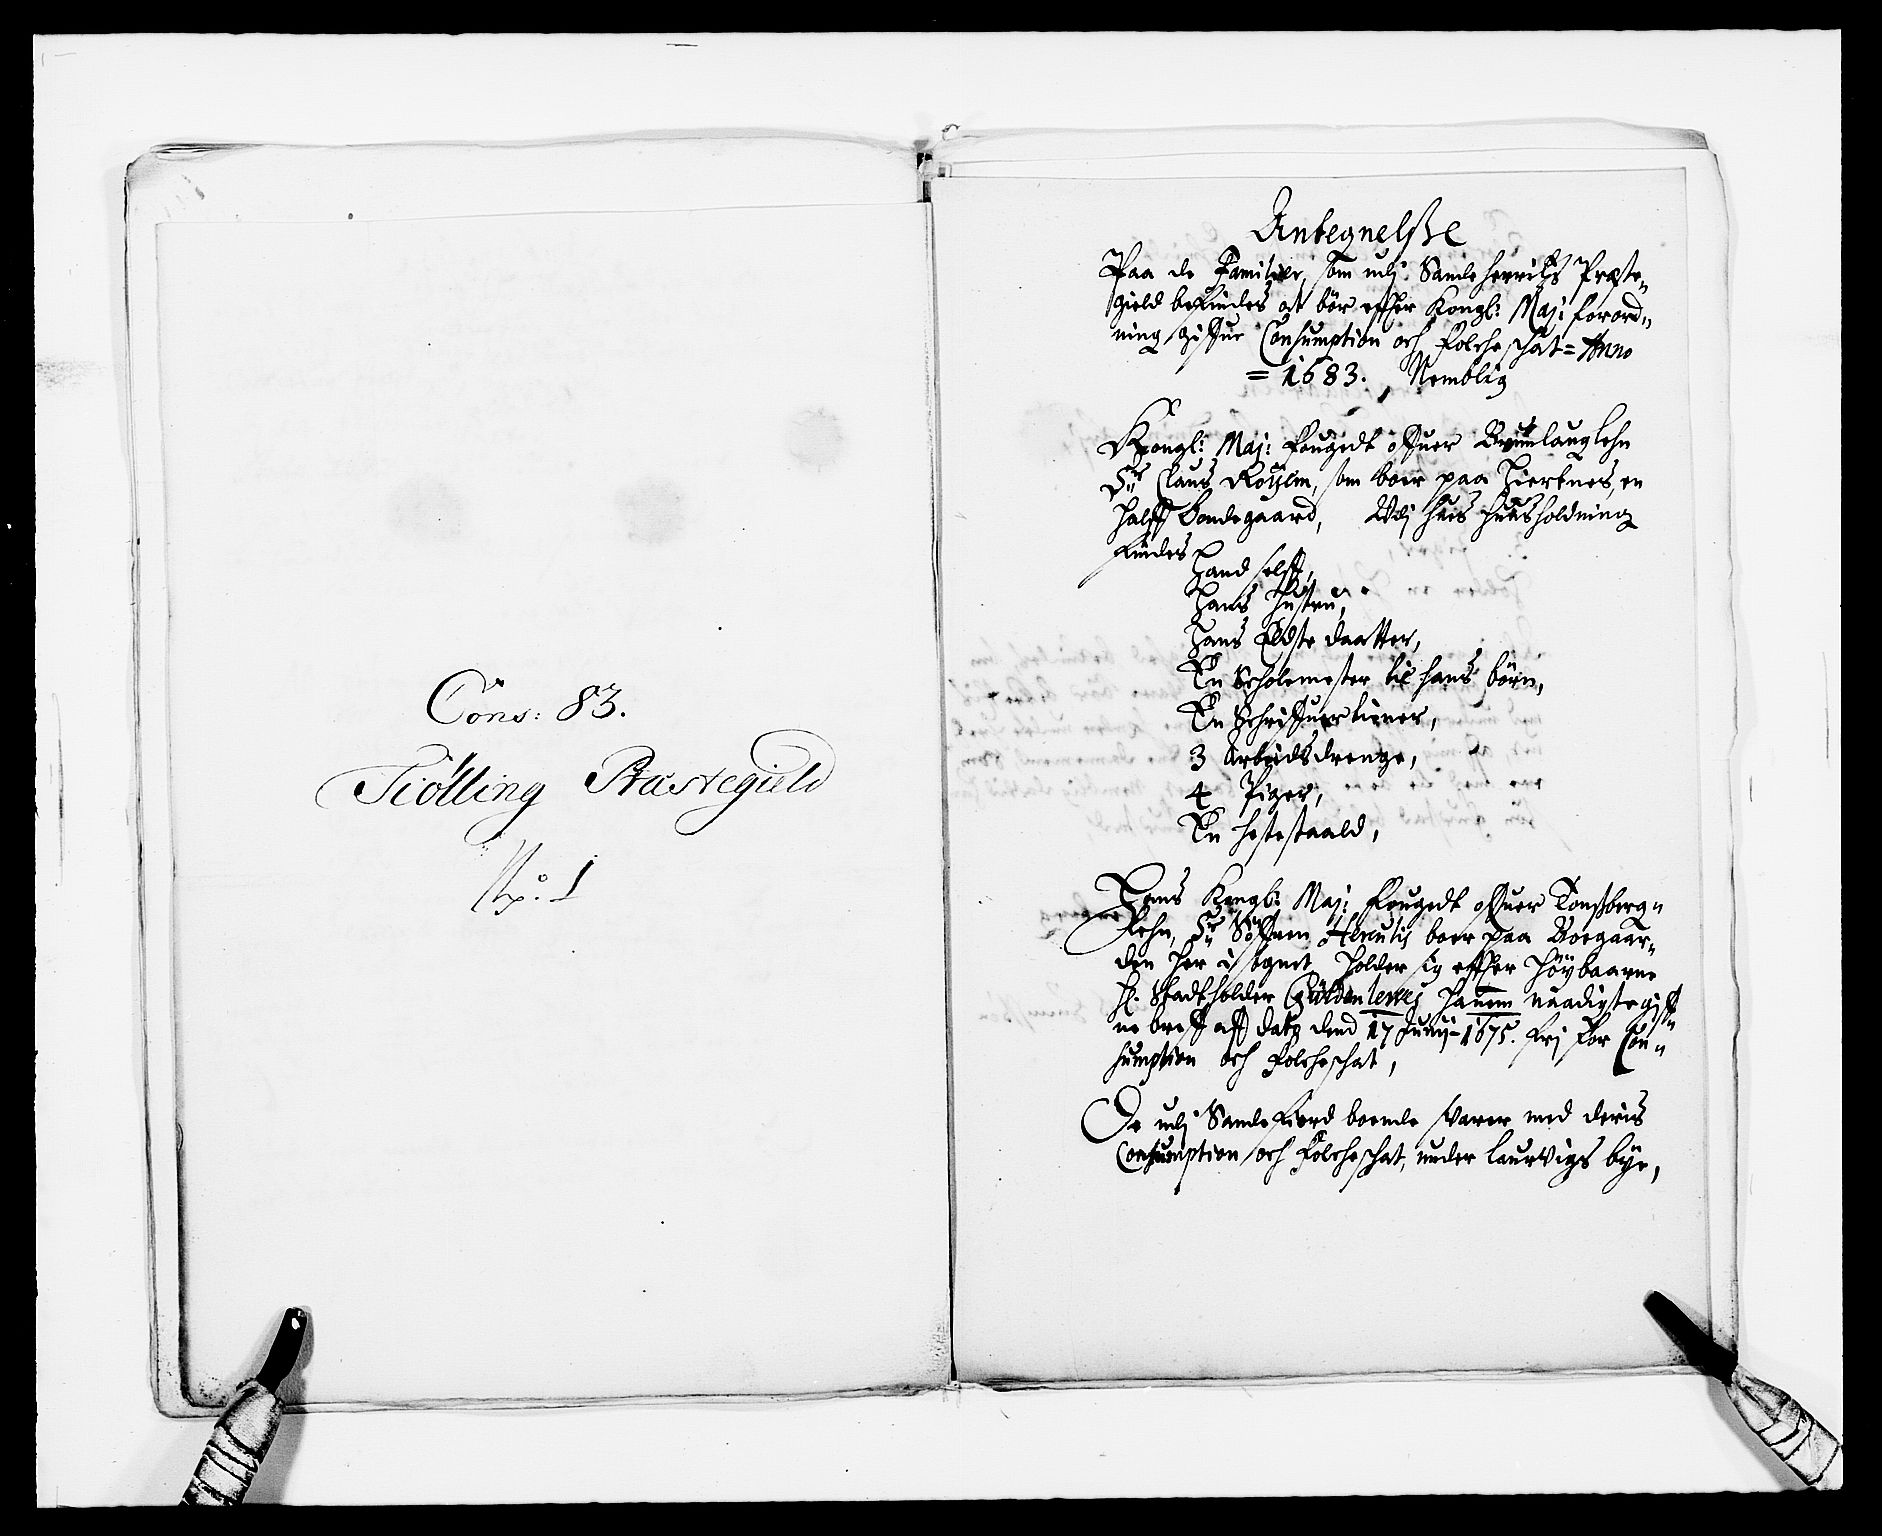 Cons: 83.
Tiölling Præstegield
No. 1
Antegnelsse
Paa de Familier, som udj Sandeherrits Præste„
gield befindes at bör effter Kongl: Maj: forord„
ning giffue Consumption och Folcheschat = Anno
= 1683. Nemblig
Kongl: Maj: Fougedt offuer Brunlauglehn
Sr Claus, som boer paa Hierknes, en
halff Bondegaard, Udj hans huusholdning
findes
Hand selff,
Hans hustru,
Hans Eldste daatter,
En Scholemester til hans börn,
En Schriffuertiener,
3 Arbeidsdrenge,
4 Piger,
En hestestaald,
Hans Kongl: Maj: Fougedt offuer Tonsberg„
Lehn, Sr Söffren boer paa Boegaar„
den her i sognit, holder sig effter höybaarne
H. Stadtholder Güldenlewes hannem naadigste giff„
ne breff aff dato dend 17 Junij 1675. frj for Con„
sumption och Folcheschat,
De udj Sandefiord boende svarer med deris
Consumption och Folcheschat, under Laurvigs bye,